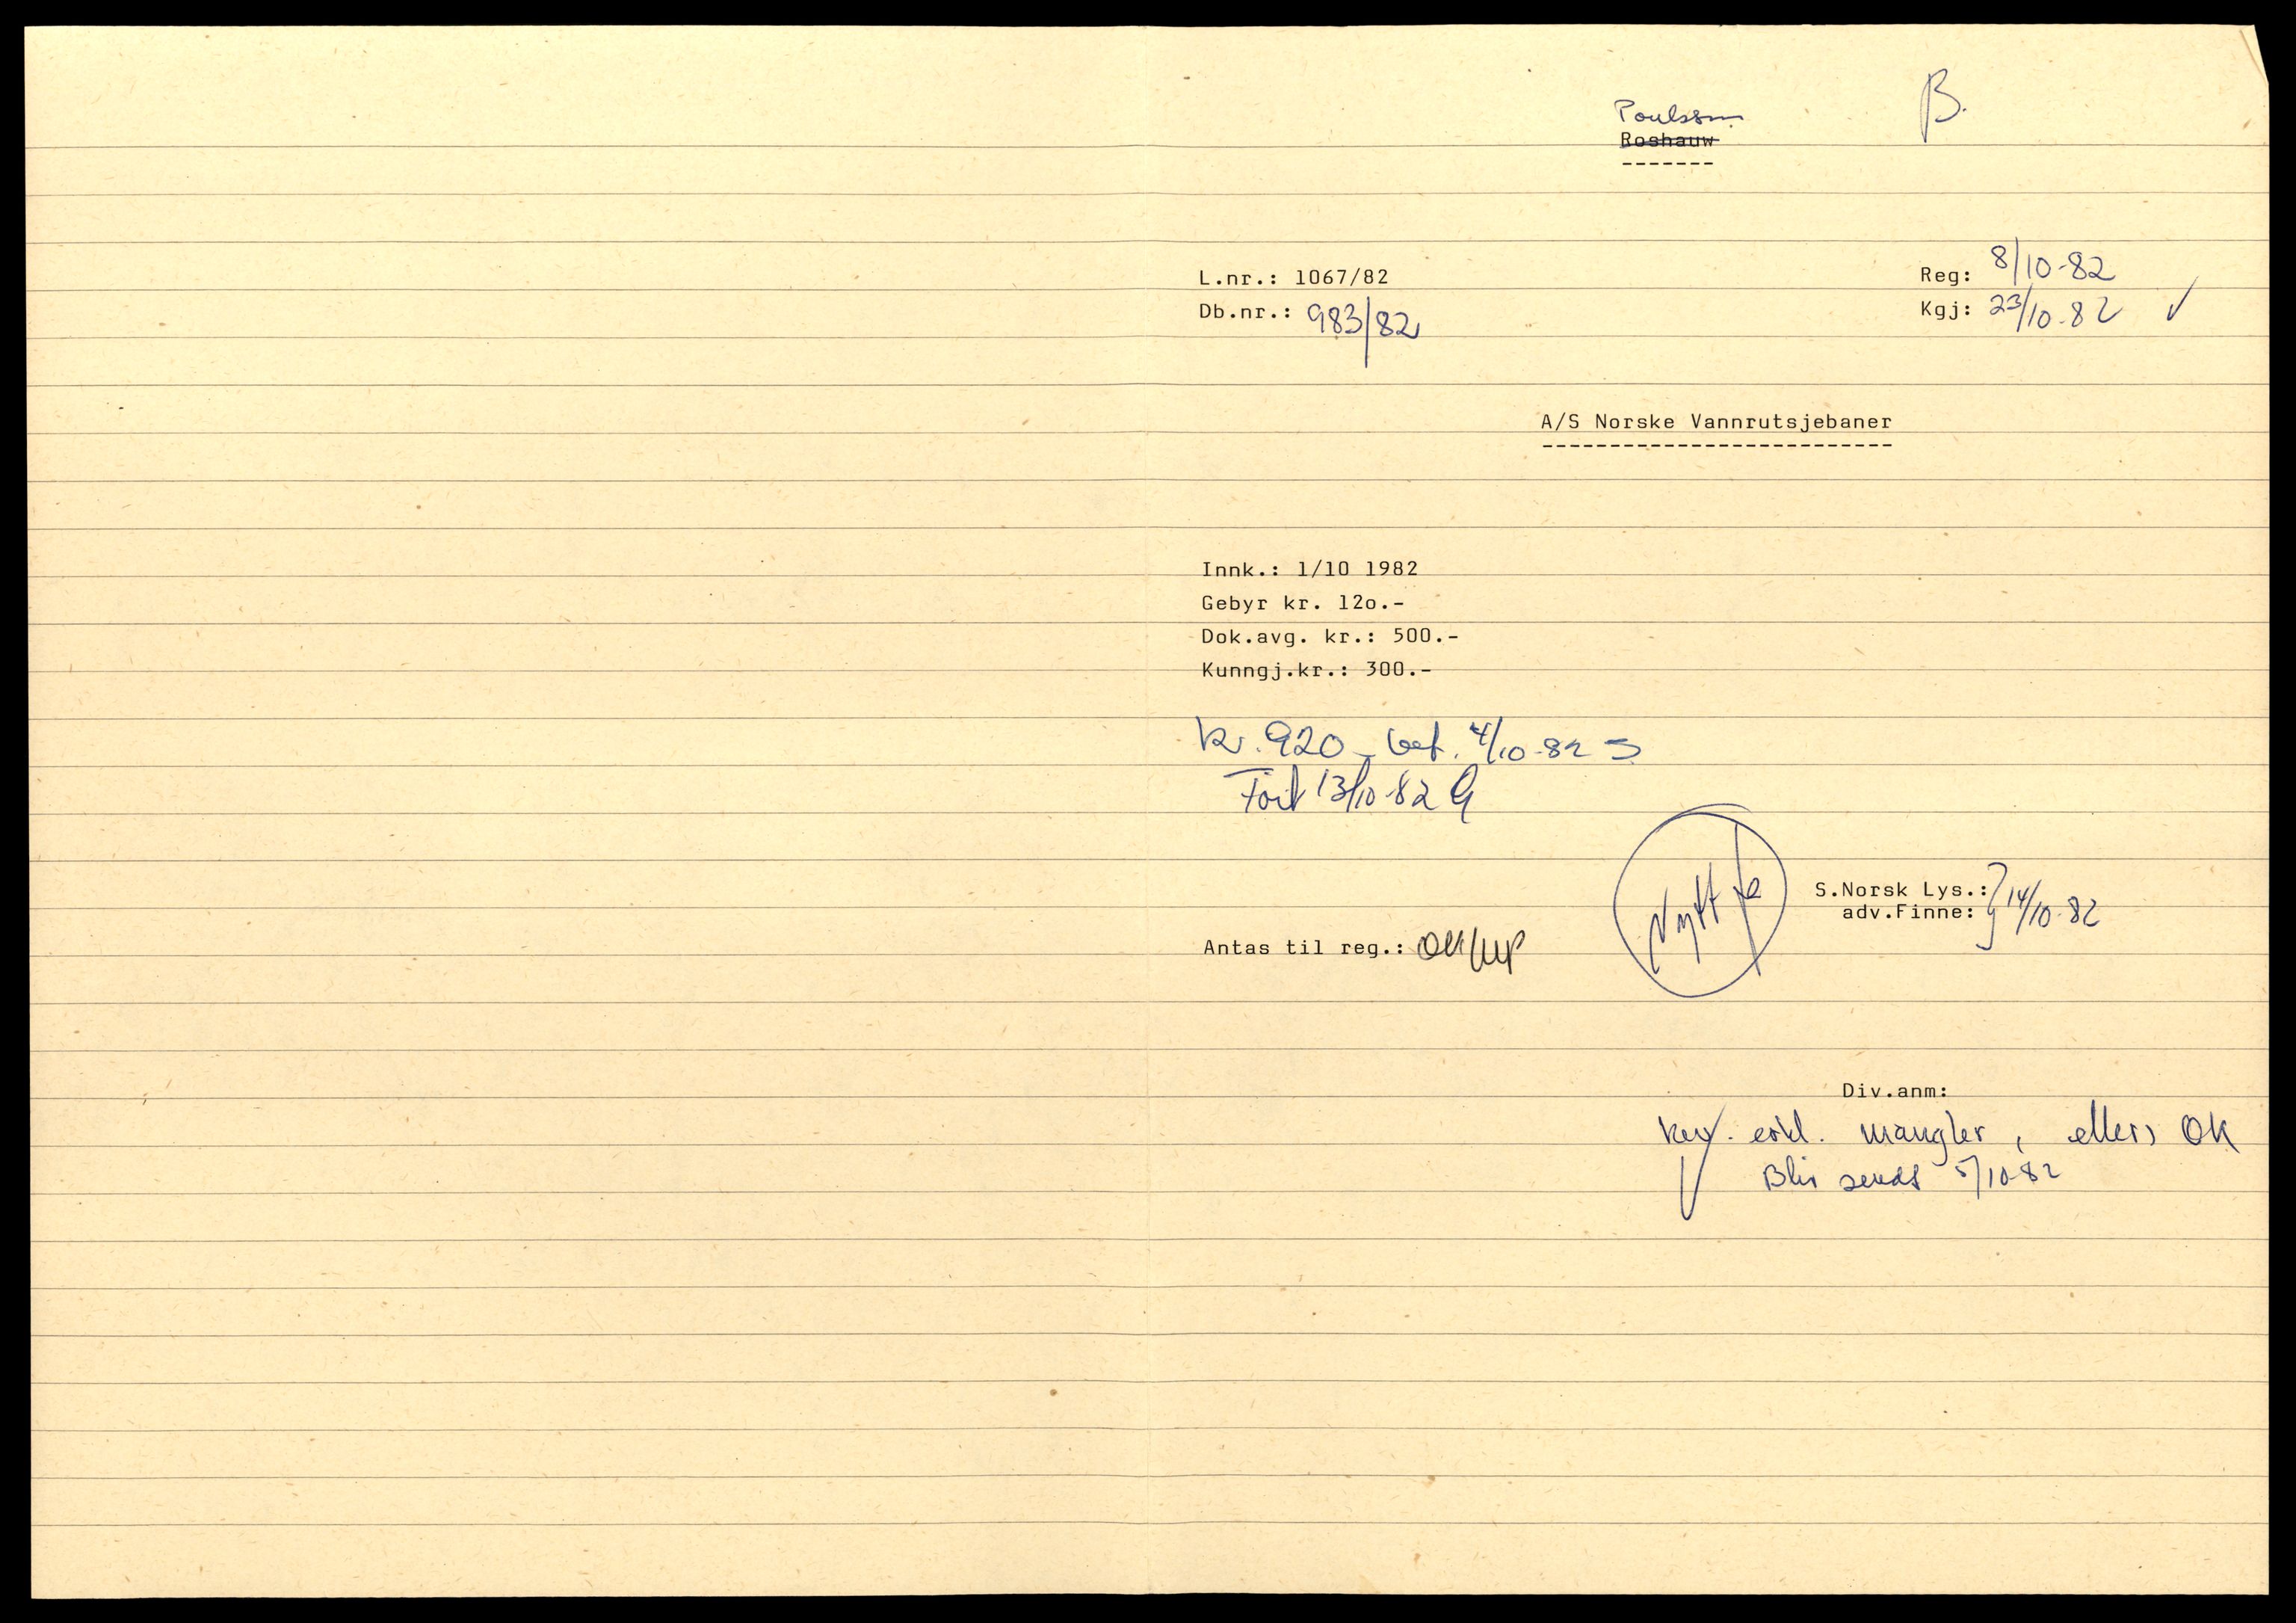 Poulsson
Roshauw
B.
L.nr.: 1067/82
Reg: 8/10-82
Db.nr.: 983/82
Kgj: 23/10-82 ✓
A/S Norske Vannrutsjebaner
Innk.: 1/10 1982
Gebyr kr. 12o.-
Dok.avg. kr.: 500.-
Kunngj.kr.: 300.-
kr. 920 - bet. 4/10-82 S
Ført 13/10-82 G
S.Norsk Lys.:
adv.Finne: } 14/10-82
Nytt
Antas til reg.: OK/MP
Div.anm:
Rev. erkl. mangler, ellers OK
Blir sendt 5/10-82